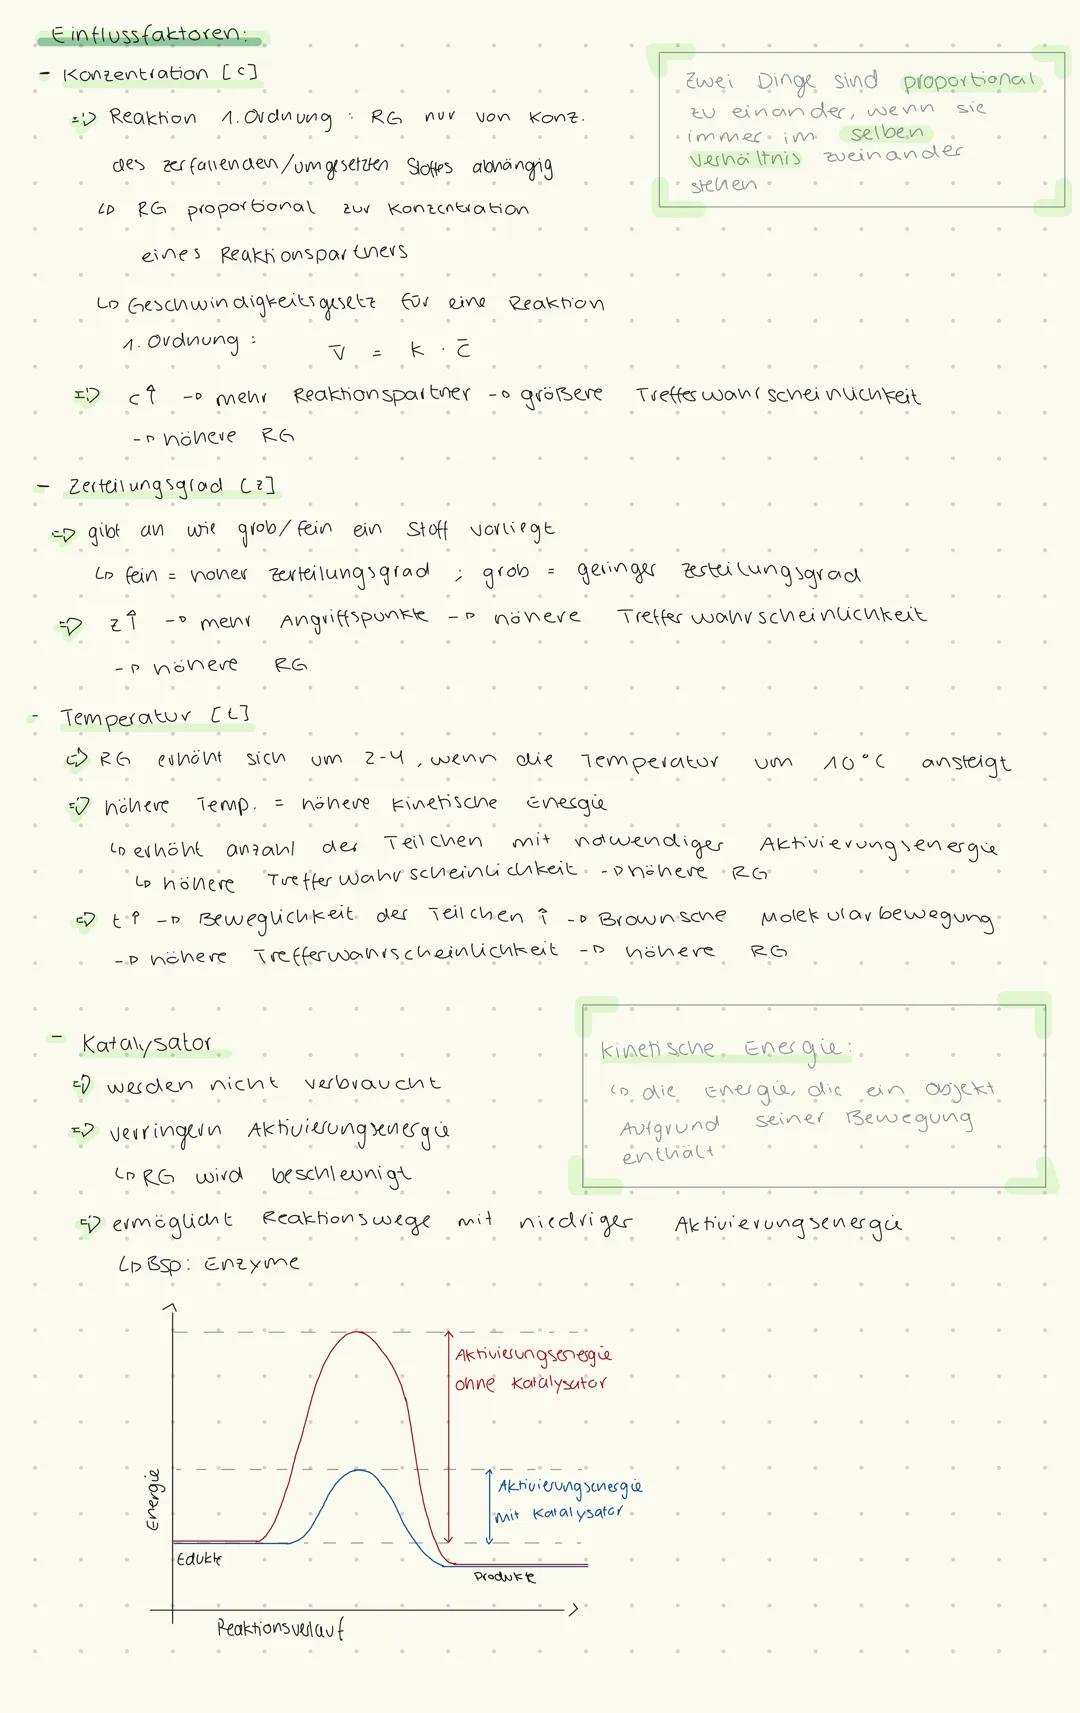 Einflussfaktoren:
- Konzentration [c]
=> Reaktion 1. Ordnung : RG nur von Konz.
des zerfallenden/umgesetzten Stoffes abhängig
↳ RG proportional zur Konzentration
eines Reaktionspartners
↳ Geschwindigkeitsgesetz für eine Reaktion
1. Ordnung : v̄ = k · c̄
=> c↑ → mehr Reaktionspartner → größere Trefferwahrscheinlichkeit
→ höhere RG
Zwei Dinge sind proportional
zu einander, wenn sie
immer im selben
Verhältnis zueinander
stehen
- Zerteilungsgrad [z]
=> gibt an wie grob/fein ein Stoff vorliegt
↳ fein = hoher Zerteilungsgrad ; grob = geringer Zerteilungsgrad
=> z↑ → mehr Angriffspunkte → höhere Trefferwahrscheinlichkeit
→ höhere RG
- Temperatur [t]
=> RG erhöht sich um 2-4, wenn die Temperatur um 10°C ansteigt
=> höhere Temp. = höhere kinetische Energie
↳ erhöht anzahl der Teilchen mit notwendiger Aktivierungsenergie
↳ höhere Trefferwahrscheinlichkeit → höhere RG
=> t↑ → Beweglichkeit der Teilchen ↑ → Brownsche Molekularbewegung
→ höhere Trefferwahrscheinlichkeit → höhere RG
- Katalysator
=> werden nicht verbraucht
=> verringern Aktivierungsenergie
↳ RG wird beschleunigt
=> ermöglicht Reaktionswege mit niedriger Aktivierungsenergie
↳ Bsp: Enzyme
kinetische Energie:
↳ die Energie, die ein Objekt
Aufgrund seiner Bewegung
enthält
Aktivierungsenergie
ohne Katalysator
Aktivierungsenergie
mit Katalysator
Energie
Edukte
Produkte
Reaktionsverlauf